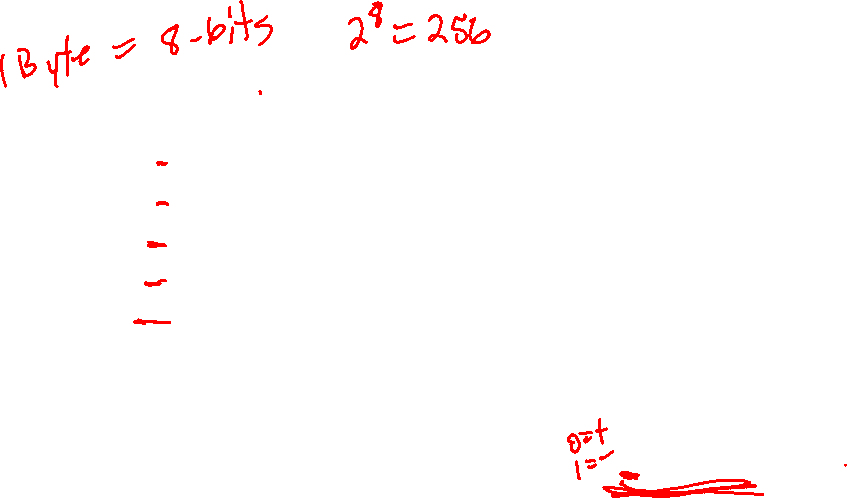 1 Byte = 8-bits 2⁸ = 256
0=+
1=-